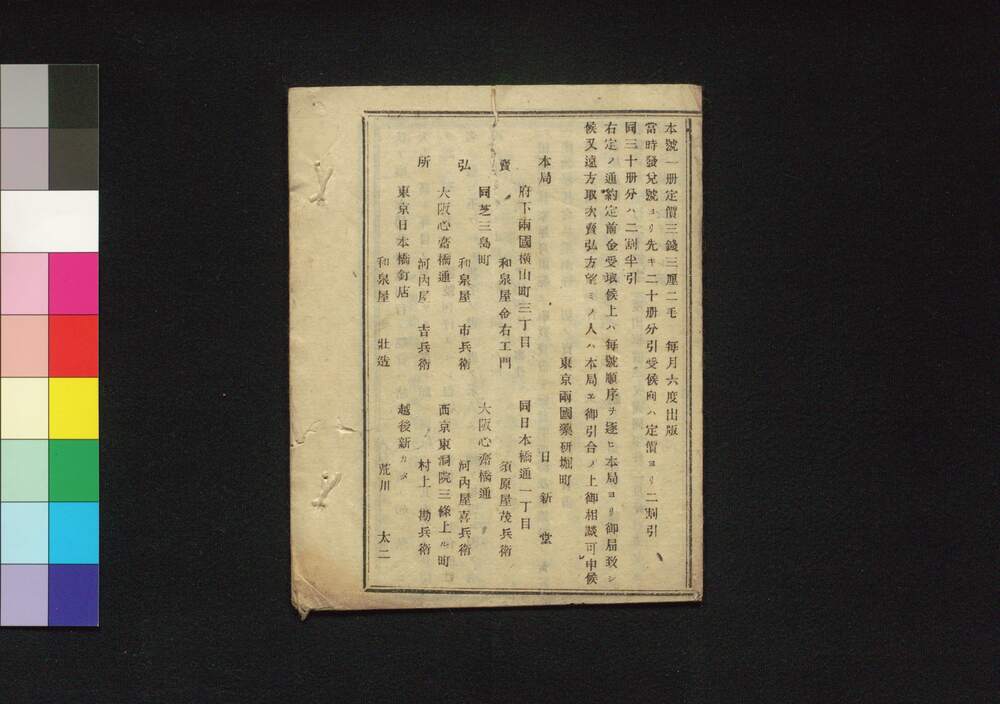 本號一册定價三錢三厘二毛　每月六度出版
當時發兌號ヨリ先キ二十册分引受候向ハ定價ヨリ二割引
同三十册分ハ二割半引
右定ノ通約定前金受取候上ハ每號順序ヲ逐ヒ本局ヨリ御屆致シ
候又遠方取次賣弘方望ミノ人ハ本局エ御引合ノ上御相談可申候
東京兩國藥研堀町
本局　日新堂
府下兩國橫山町三丁目　同日本橋通一丁目
賣　和泉屋金右エ門　須原屋茂兵衞
同芝三島町　大阪心齋橋通
弘　和泉屋　市兵衞　河內屋喜兵衞
大阪心齋橋通　西京東洞院三條上ル町
所　河內屋　吉兵衞　村上　勘兵衞
東京日本橋釘店　越後新カタ
和泉屋　壯造　荒川　太二